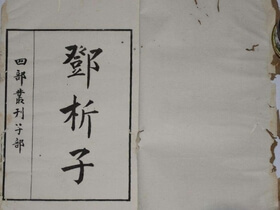 鄧析子
四部叢刊子部